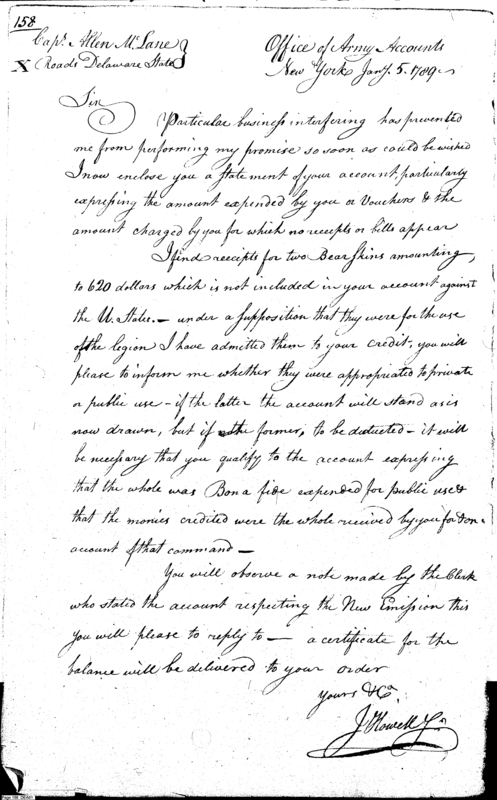 158
Capt. Allen McLane
X Roads Delaware State
Office of Army Accounts
New York Jany. 5. 1789
Sir
Particular business interfering has prevented
me from performing my promise so soon as could be wished
I now enclose you a statement of your account, particularly
expressing the amount expended by you or Vouchers & the
amount charged by you for which no receipts or bills appear
I find receipts for two Bear Skins amounting,
to 620 dollars which is not included in your account against
the U. States. — under a supposition that they were for the use
of the legion I have admitted them to your credit, you will
please to inform me whether they were appropriated to private
or public use — if the latter the account will stand as is
now drawn, but if the former, to be deducted — it will
be necessary that you qualify to the account expressing
that the whole was Bona fide expended for public use &
that the monies credited were the whole received by you for & on
account of that command —
You will observe a note made by the Clerk
who stated the account respecting the New Emission this
you will please to reply to — a certificate for the
balance will be delivered to your order
Yours &Ca.
J Howell Jr.